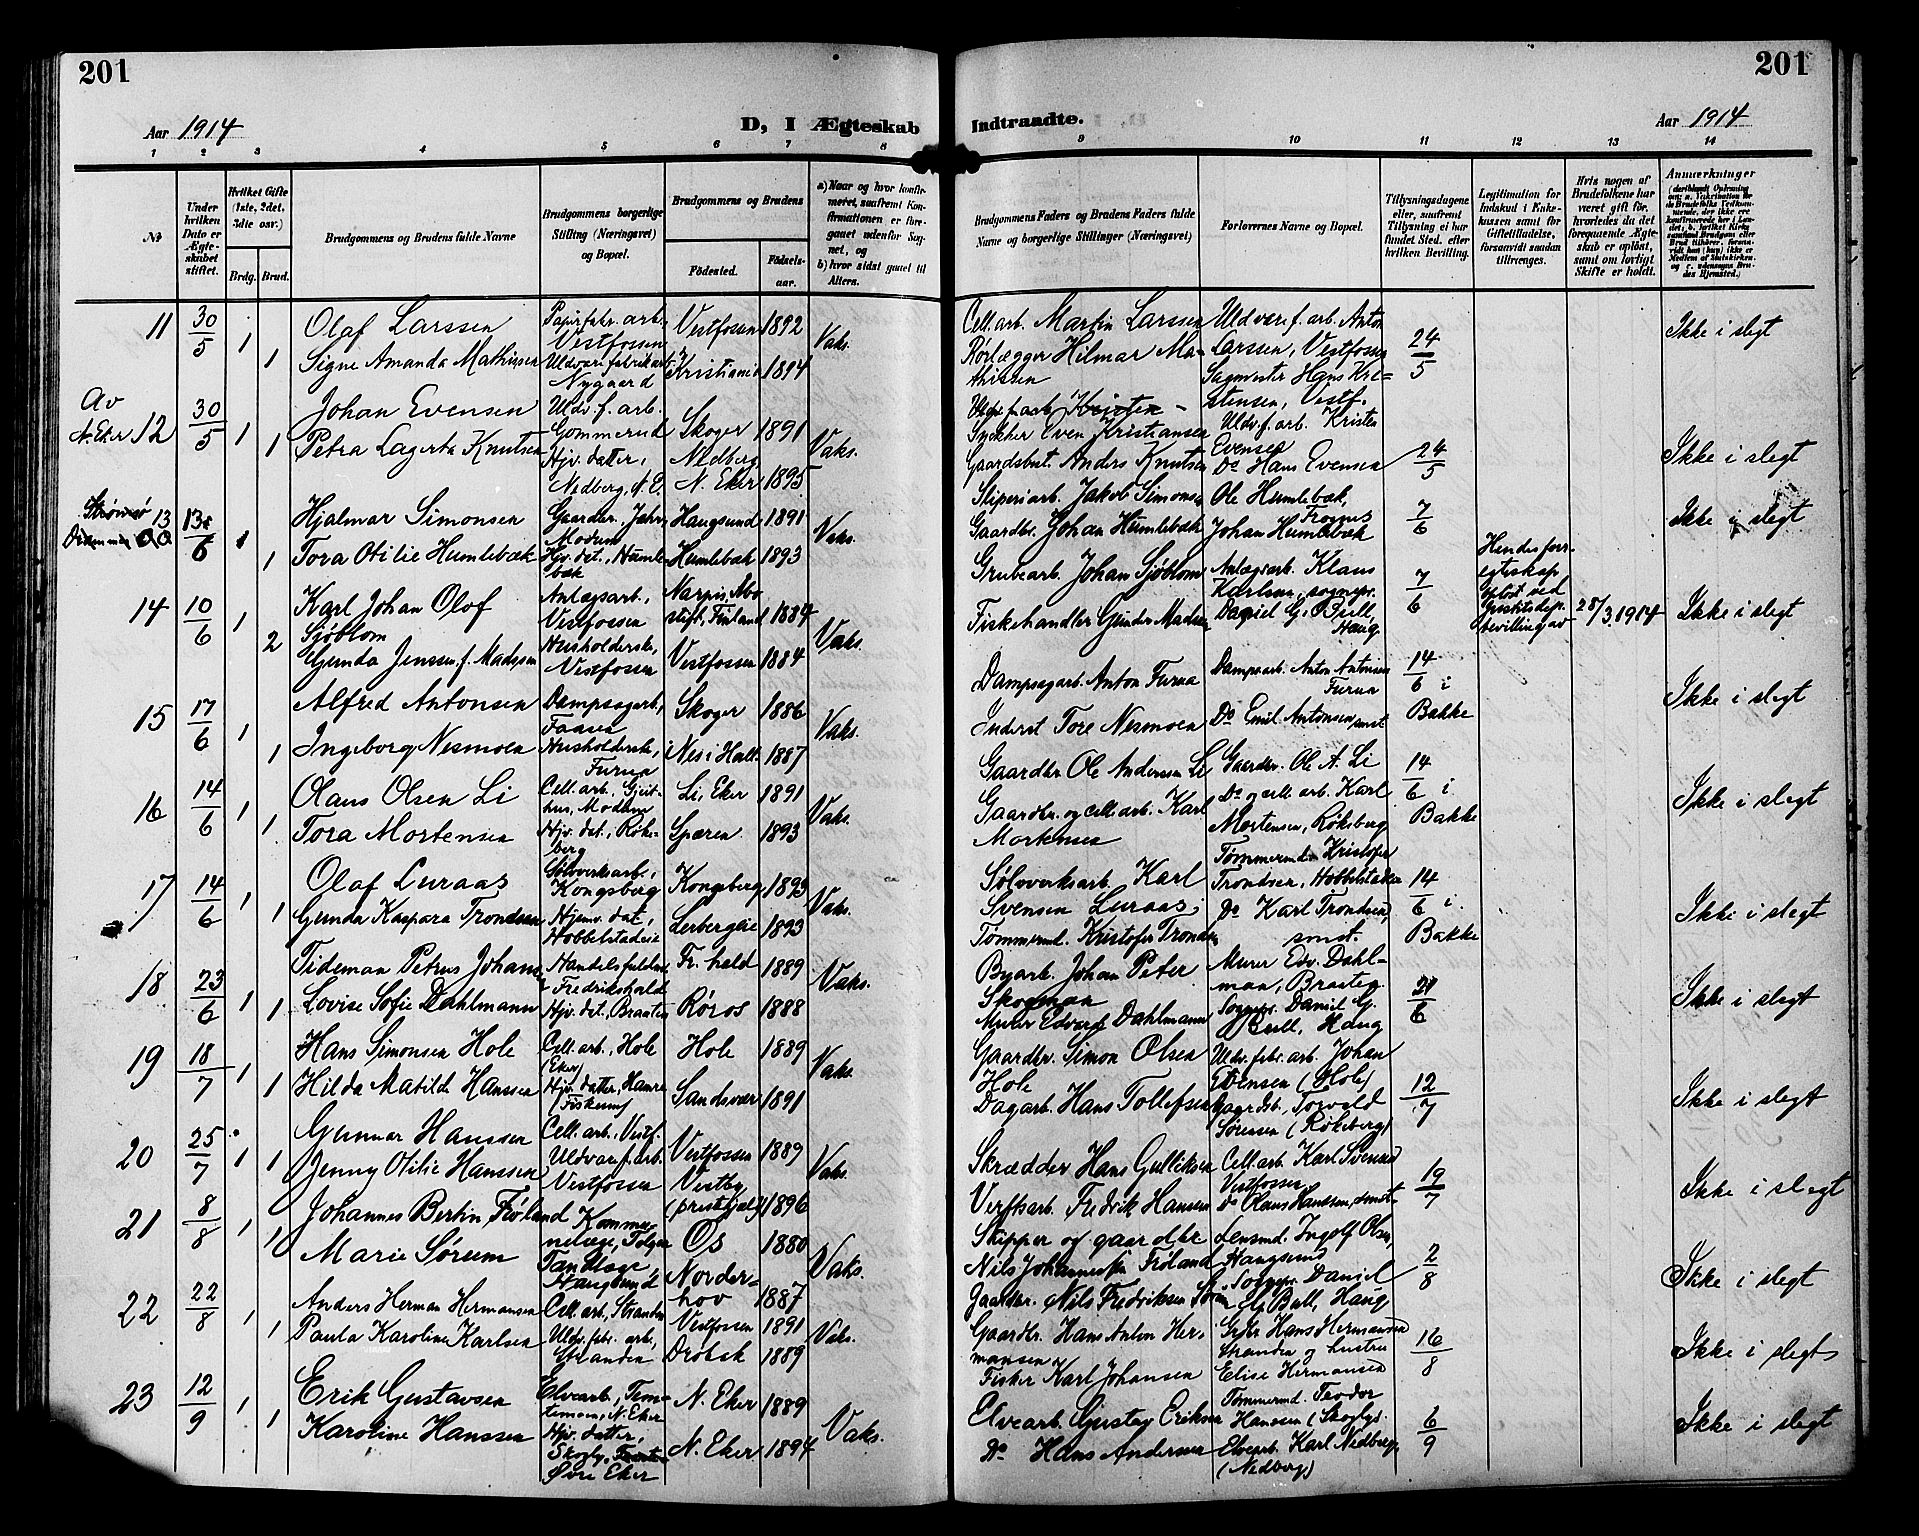 201
201
Aar 1914
D, I Ægteskab
Indtraadte.
Aar 1914
1 2 3 4 5 6 7 8 9 10 11 12 13 14
№
Under hvilken Dato er Ægteskabet stiftet.
Hvilket Gifte (1ste, 2det, 3die osv.)
Brdg. Brud.
Brudgommens og Brudens fulde Navne
Brudgommens borgerlige Stilling (Næringsvei) og Bopæl.
Brudgommens og Brudens
Fødested.
Fødselsaar.
a) Naar og hvor konfirmeret, saafremt Konfirmationen er foregaaet udenfor Sognet, og
b) hvor sidst gaaet til Alters.
Brudgommens Faders og Brudens Faders fulde Navne og borgerlige Stillinger (Næringsvei)
Forlovernes Navne og Bopæl.
Tillysningsdagene eller, saafremt Tillysning ei har fundet Sted, efter hvilken Bevilling.
Legitimation for Indskud i Enkekassen samt for Giftetilladelse, forsaavidt saadan tiltrænges.
Hvis nogen af Brudefolkene har været gift før, hvorledes da det foregaaende Ægteskab er opløst, samt om lovligt Skifte er holdt.
Anmærkninger
11 30/5 1 Olaf Larssen Papirfabr. arb. Vestfossen Vestfossen 1892 Vaks. Cell. arb. Martin Larssen Uldvaref. arb. Anton Larssen, Vestfossen 24/5 Ikke i slegt
1 Signe Amanda Mathissen Uldvarefabrikarb. Nygaard Kristiania 1894 Rørlægger Hilmar Mathissen Sagmester Hans Kristensen, Vestf.
Av N. Eker 12 30/5 1 Johan Evensen Uldv. f. arb. Gommerud Skoger 1891 Vaks. Even Kristiansen Uldv. f. arb. Kristen Evensen 24/5 Ikke i slegt
1 Petra Lagerta Knutsen Hjv. datter, Nedberg, N. E. Nedberg, N. Eker 1895 Gaardsbest. Anders Knutsen Do. Hans Evensen
Strømsø Drammen 13 13/6 1 Hjalmar Simonsen Gaardbr. Modum Haugsund 1891 Vaks. Sliperiarb. Jakob Simonsen Ole Humlebæk, 7/6 Ikke i slegt
1 Tora Otilie Humlebæk Hjv. dat., Humlebæk Humlebæk 1893 Gaardbr. Johan Humlebæk Johan Humlebæk
14 10/6 1 Karl Johan Olof Sjøblom Anlægsarb., Vestfossen Narpis, Åbo stift, Finland 1884 Vaks. Grubearb. Johan Sjöblom Anlægsarb. Klaus Karlsen, sognepr. Daniel G. Bull, Haug 7/6 Hendes forr. egteskap opløst ved Justitsdep. bevilling av 28/3.1914 Ikke i slegt
2 Gunda Jenssen f. Madssen Husholdersk., Vestfossen Vestfossen 1884 Fiskehandler Gunder Madsen
15 17/6 1 Alfred Antonsen Dampsagarb., Faasen Skoger 1886 Vaks. Dampsagarb. Anton Furua Dampsarb. Anton Antonsen Furua 14/6 i Bakke Ikke i slegt
1 Ingeborg Nesmoen Husholdersk., Furua Nes i Hall. 1887 Inderst Tore Nesmoen Do. Emil Antonsen smst.
16 14/6 1 Olaus Olsen Li Cell. arb., Gjeithus, Modum Li, Eker 1891 Vaks. Gaardbr. Ole Andersen Li Gaardbr. Ole A. Li 14/6 i Bakke Ikke i slegt
1 Tora Mortensen Hjv. dat., Røkeberg Speren 1893 Gaardbr. og cell. arb. Karl Mortensen Do. og cell. arb. Karl Mortensen, Røkeberg
17 14/6 1 Olaf Luraas Sølvverksarb., Kongsberg Kongsberg 1893 Vaks. Sølvverksarb. Karl Svensen Luraas Tømmermd. Kristofer Trondsen, Hobbelstaden 14/6 i Bakke Ikke i slegt
1 Gunda Kaspara Trondsen Hjemv. dat., Hobbelstadeie Lerbergeie 1893 Tømmermd. Kristofer Trondsen Do. Karl Trondsen, smst.
18 23/6 1 Tideman Petrus Johans. Handelsfuldm. Fredrikshald Fr. hald 1889 Vaks. Byarb. Johan Peter Skogman Murer Edv. Dahlman, Braaten 21/6 Ikke i slegt
1 Lovise Sofie Dahlmann Hjv. det., Braaten Røros 1888 Murer Edvard Dahlmann Sognepr. Daniel G. Bull, Haug
19 18/7 1 Hans Simonsen Hole Cell. arb., Hole (Eker) Hole 1889 Vaks. Gaardbr. Simon Olsen Hole Uldv. fabr. arb. Johan Evensen (Hole) 12/7 Ikke i slegt
1 Hilda Matilde Hanssen Hjv. datter, Hamre (Fiskum) Sandsvær 1891 Dagarb. Hans Tollefsen Gaardsb. Torvald Sørensen (Røkeberg)
20 25/7 1 Gunnar Hanssen Cell. arb., Vestf. Vestfossen 1889 Vaks. Skrædder Hans Gulliksen Cell. arb. Karl Svensen Vestfossen 19/7 Ikke i slegt
1 Jenny Otilie Hanssen Uldvaref. arb. Vestfossen Vestby (prestegjæld) 1896 Verftsarb. Fredrik Hansen Do. Olaus Hanssen, smst.
21 8/8 1 Johannes Bertin Frøland Kommunelæge, Tolgen Os 1880 Vaks. Skipper og gaardbr. Nils Johannessen Frøland Lensmd. Ingolf Olsen, Haugsund 2/8 Ikke i slegt
1 Marie Sørum Tandlæge, Haugsund Norderhov 1887 Gaardbr. Nils Fredriksen Sørum Sognepr. Daniel G. Bull, Haug
22 22/8 1 Anders Herman Hermansen Cell. arb., Stranden Vestfossen 1891 Vaks. Gaardbr. Hans Anton Hermansen Grbr. Hans Hermansen Stranden og hustru Elise Hermansen 16/8 Ikke i slegt
1 Paula Karoline Karlsen Uldv. fabr. arb., Stranden Drøbak 1889 Fisker Karl Johansen
23 12/9 1 Erik Gustavsen Elvearb., Temtemoen, N. Eker N. Eker 1889 Vaks. Elvearb. Gustav Eriksen Tømmermd. Teodor Hanssen (Skogly) 6/9 Ikke i slegt
1 Karoline Hanssen Hjv. datter, Skogly, Øvre Eker N. Eker 1894 Do. Hans Andersen Elvearb. Karl Nedberg, (Nedberg)